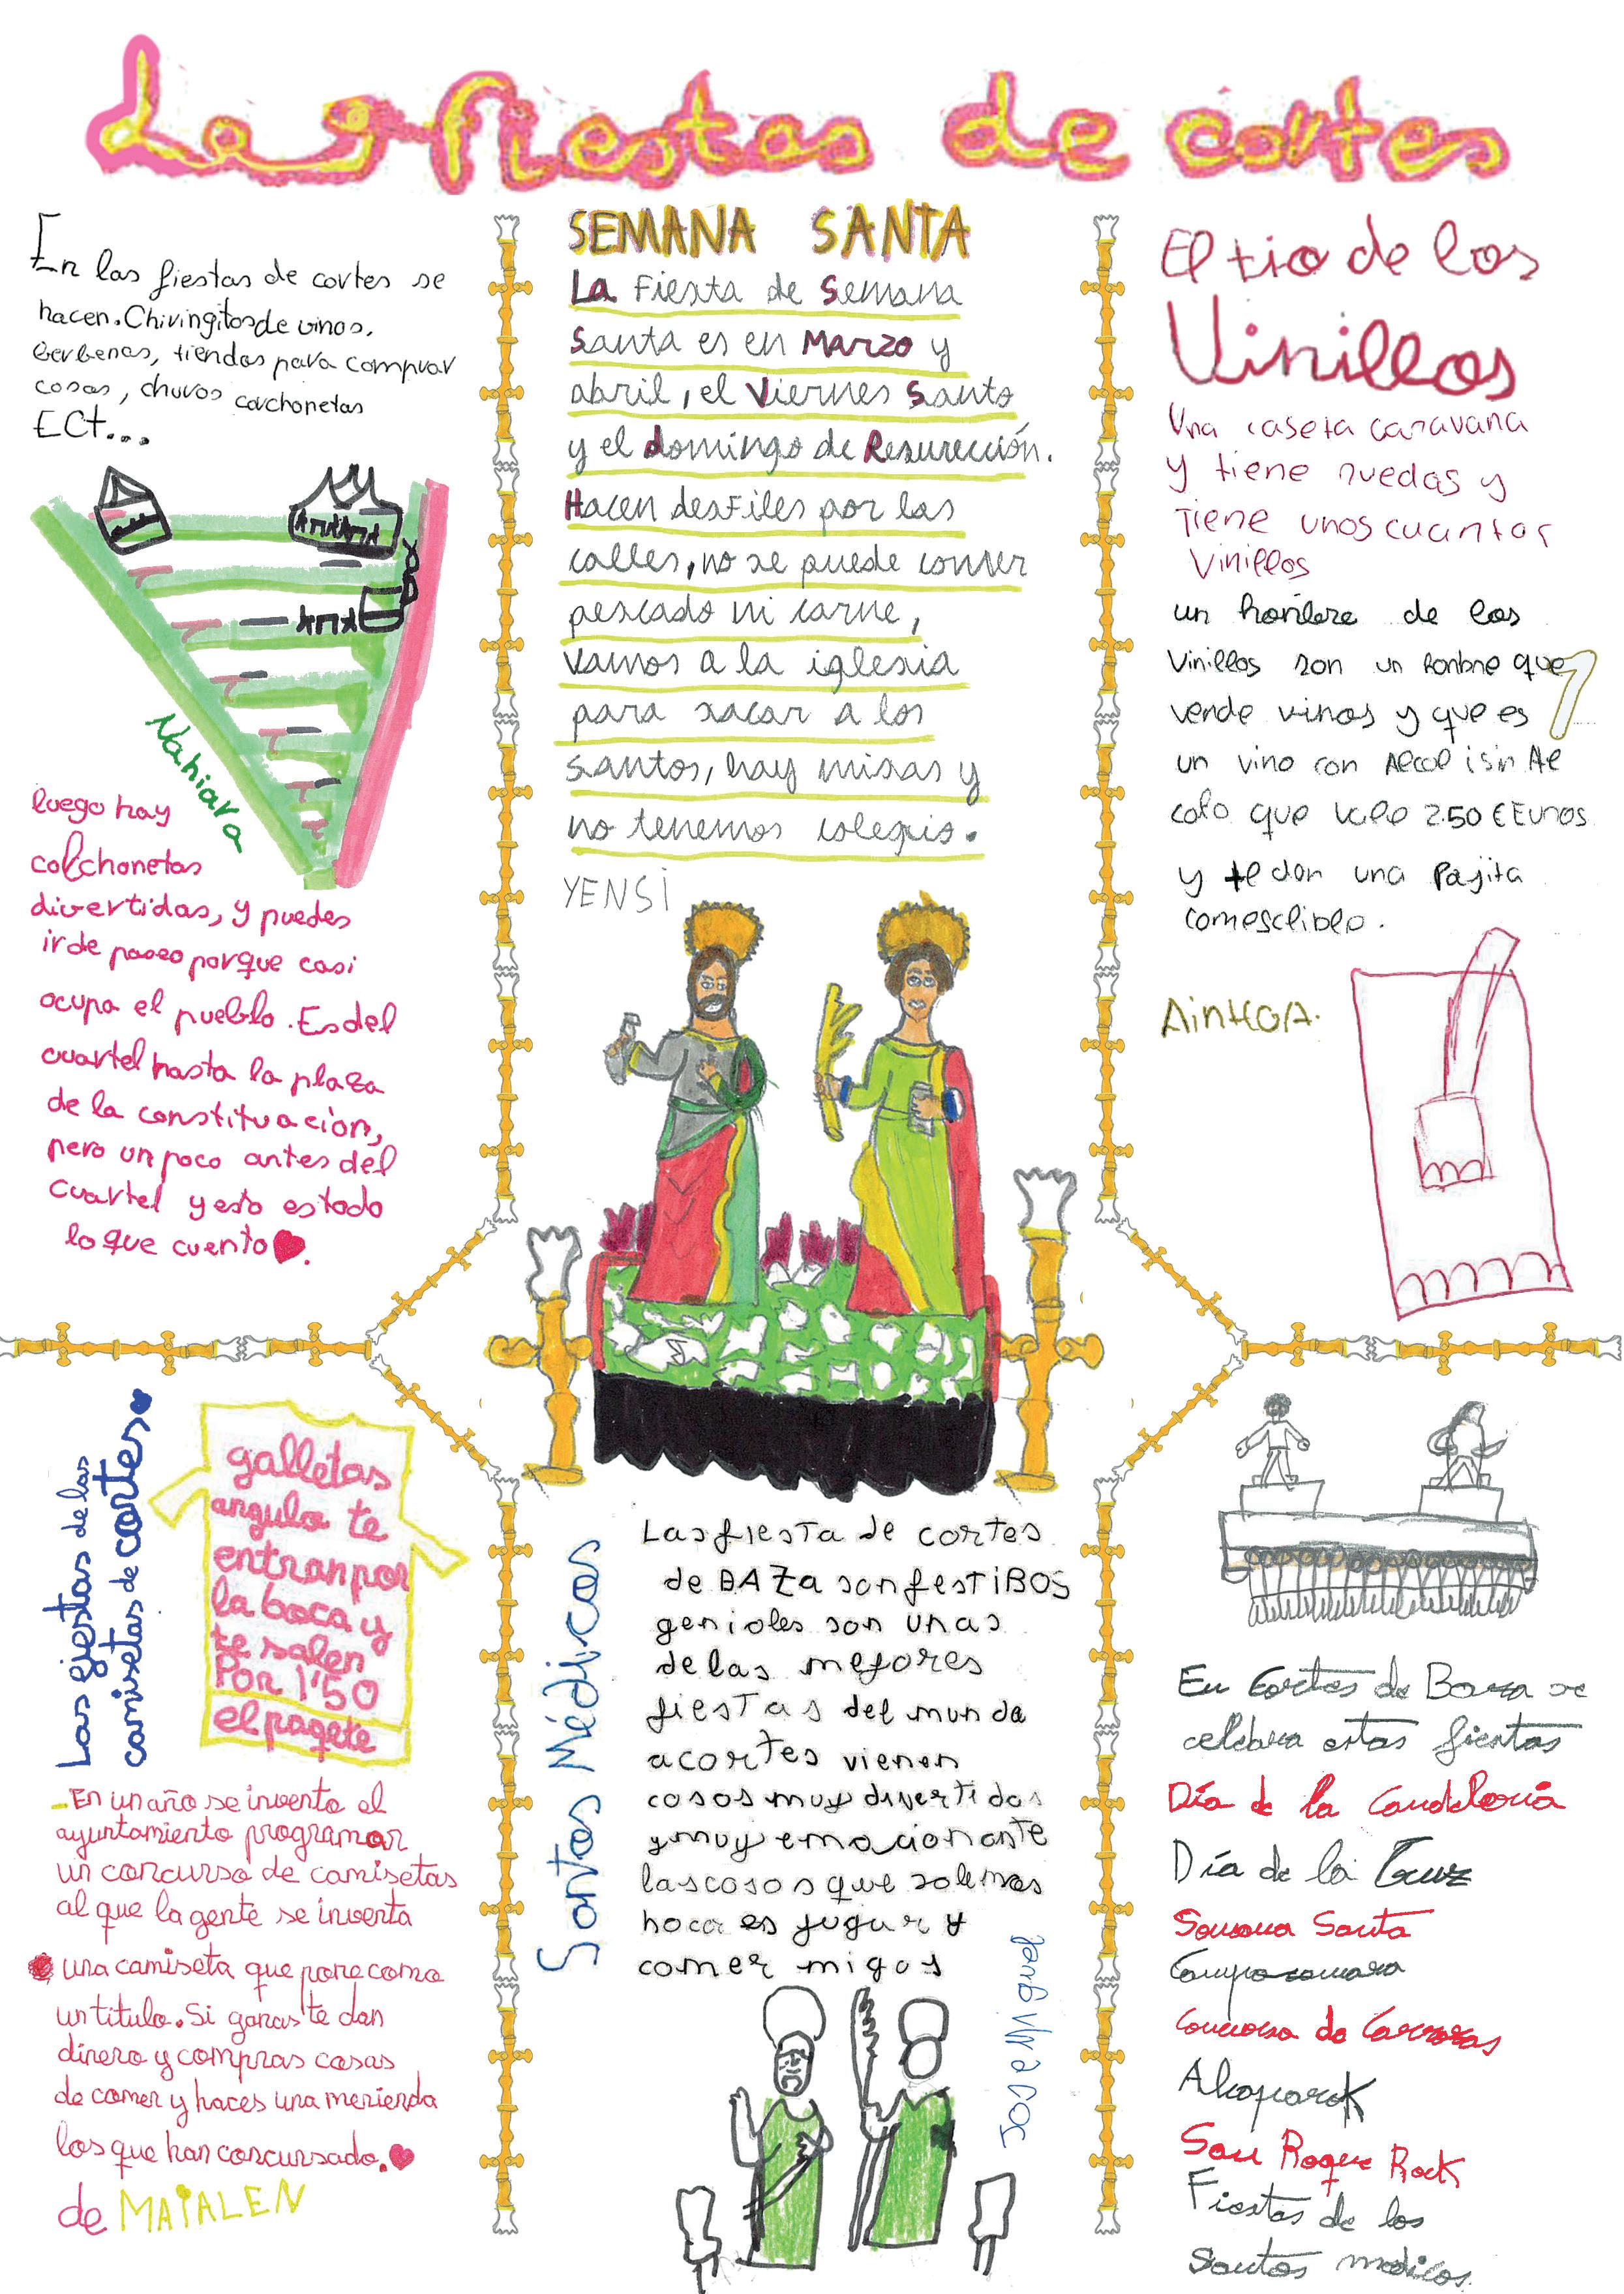 Las fiestas de cortes
En las fiestas de cortes se
hacen. Chiringitos de vinos,
berbenas, tiendas para comprar
cosas, churos colchonetas
ECt...
Nahiara
luego hay
colchonetas
divertidas, y puedes
ir de paseo porque casi
ocupa el pueblo. Es del
cuartel hasta la plaza
de la constituacion,
pero un poco antes del
cuartel y esto es todo
lo que cuento
SEMANA SANTA
La Fiesta de Semana
Santa es en Marzo y
abril, el Viernes Santo
y el domingo de Resurección.
Hacen desfiles por las
calles, no se puede comer
pescado ni carne,
vamos a la iglesia
para sacar a los
santos, hay misas y
no tenemos colegio.
YENSI
El tio de los
Vinillos
Una caseta caravana
y tiene ruedas y
Tiene unos cuantos
vinillos
un honbre de los
vinillos son un honbre que
vende vinos y que es
un vino con Alcol i sin Al
colo que vale 2.50 € Euros
y te dan una Pajita
comesclible.
AINHOA.
Las fiestas de las
camisetas de cortes
galletas
angulo te
entran por
la boca y
te salen
Por 1'50
el paqete
En un año se invento el
ayuntamiento programar
un concurso de camisetas
al que la gente se inventa
una camiseta que pone como
un titulo. Si ganas te dan
dinero y compras cosas
de comer y haces una merienda
los que han concursado.
de MAIALEN
Santos Médicos
Las fiesta de cortes
de BAZa son festiBOS
geniales son unas
de las mejores
fiestas del munda
a cortes vienen
cosas muy divertidas
y muy emacionante
las cosas que solemos
hocer es jugar y
comer migas
Jose Miguel
En Cortes de Baza se
celebra estas fiestas
Día de la Candelaria
Día de la Cruz
Semana Santa
Concurso de Carrozas
Alcaparok
San Roque Rock
Fiestas de los
Santos medicos.